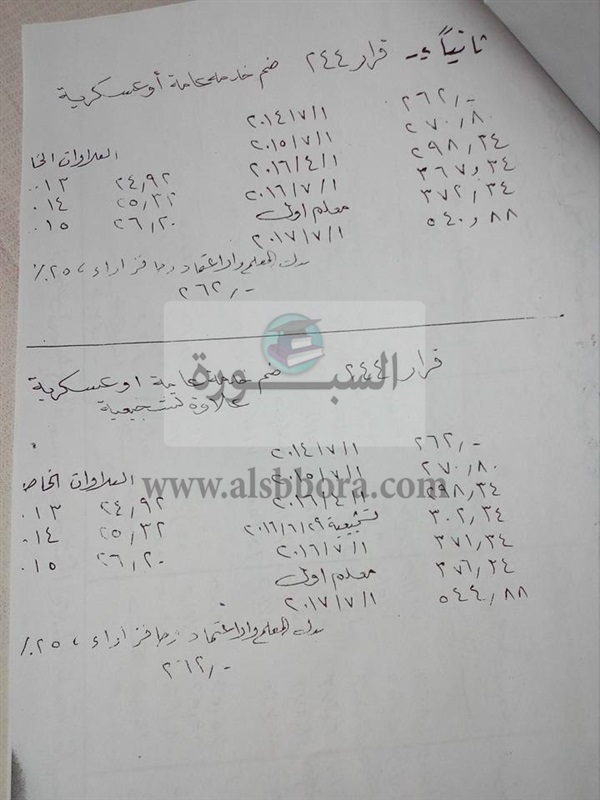 ثانياً :- قرار ٢٤٤ ضم خدمه عامة أو عسكرية
٢٦٢,- ٢٠١٤/٧/١
٢٧٠,٨٠ ٢٠١٥/٧/١ العلاوات الخا
٢٩٨,٣٤ ٢٠١٦/٤/١ ٢٤,٩٢ ٠١٣
٣٦٧,٣٤ ٢٠١٦/٧/١ ٢٥,٣٢ ٠١٤
٣٧٢,٣٤ معلم اول ٢٦,٢٠ ٠١٥
٥٤٠,٨٨ ٢٠١٧/٧/١
بدل المعلم والاعتماد وحافز اداء ، ٢٥٪
٢٦٢,-
السبورة
www.alsbbora.com
قرار ٢٤٤ ضم خدمه عامة او عسكرية
علاوة تشجيعية
٢٦٢,- ٢٠١٤/٧/١
٢٧٠,٨٠ ٢٠١٥/٧/١ العلاوات الخاص
٢٩٨,٣٤ ٢٠١٦/٤/١ ٢٤,٩٢ ٠١٣
٣٠٢,٣٤ تشجيعية ٢٠١٦/٦/٢٩ ٢٥,٣٢ ٠١٤
٣٧١,٣٤ ٢٠١٦/٧/١ ٢٦,٢٠ ٠١٥
٣٧٦,٣٤ معلم اول
٥٤٤,٨٨ ٢٠١٧/٧/١
بدل المعلم والاعتماد وحافز اداء ، ٢٥٪
٢٦٢,-